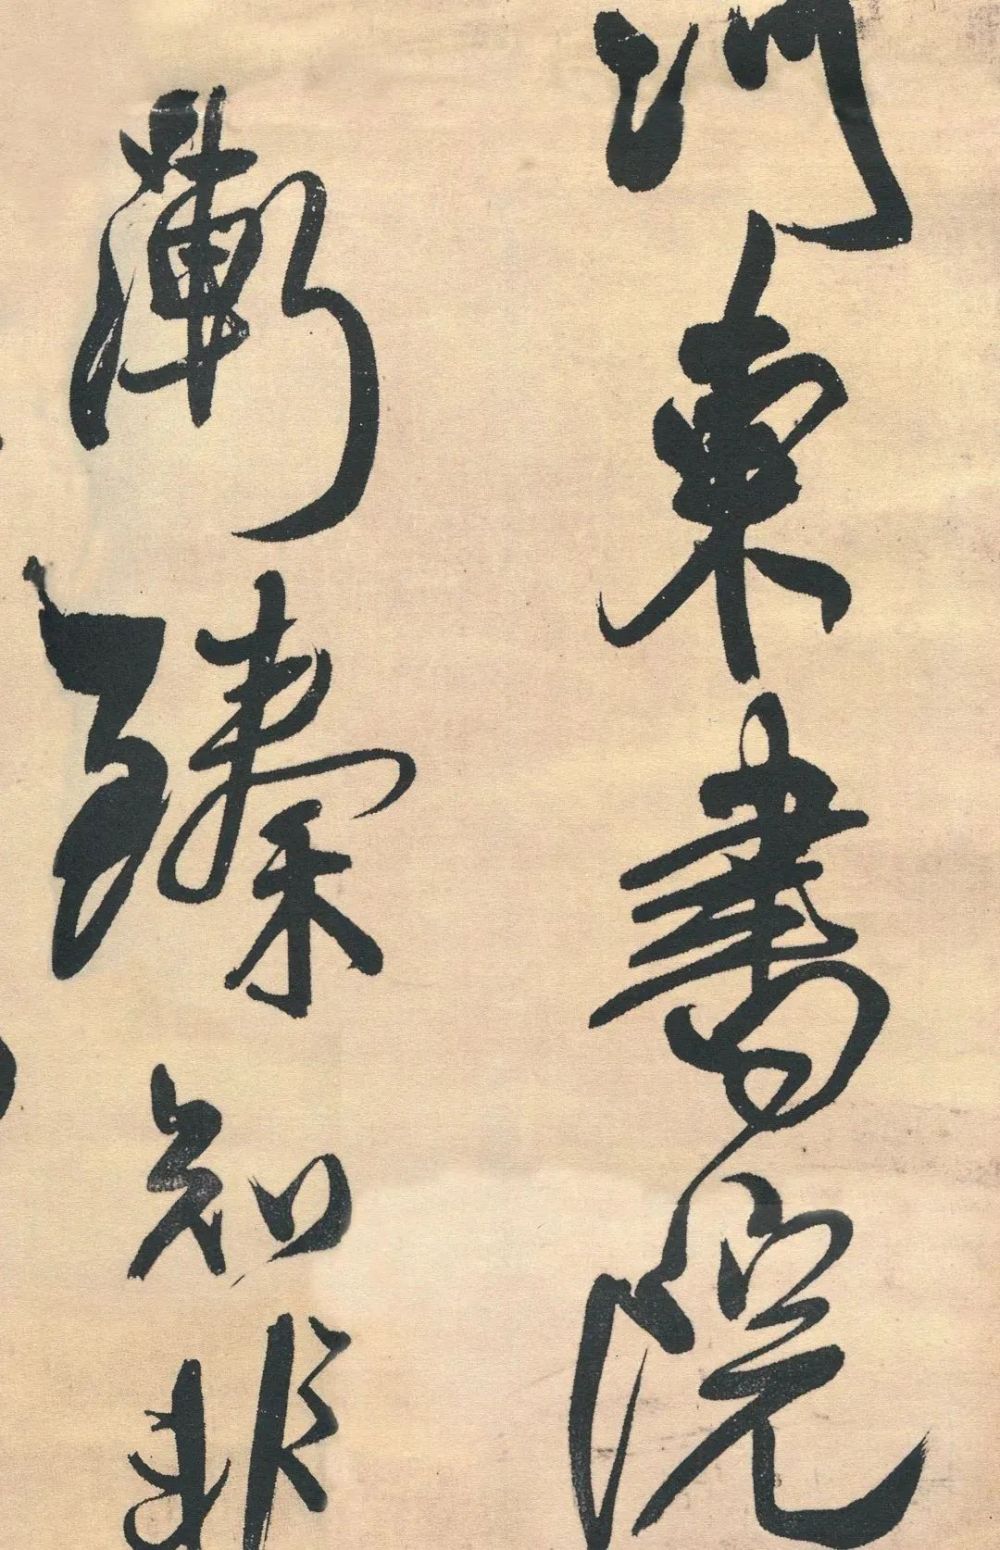 東書院
漸臻知非